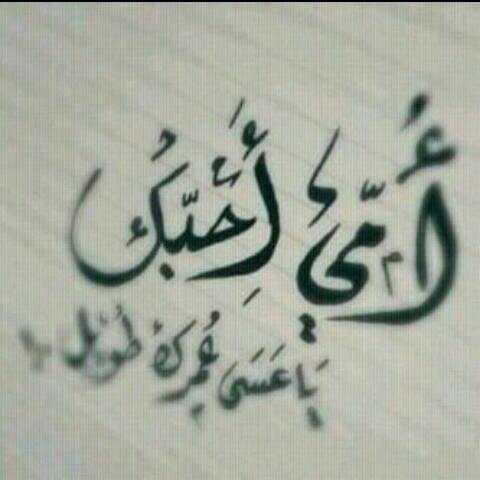 أُمّي أُحِبُّك
يَا عَسَى عُمرك طويل